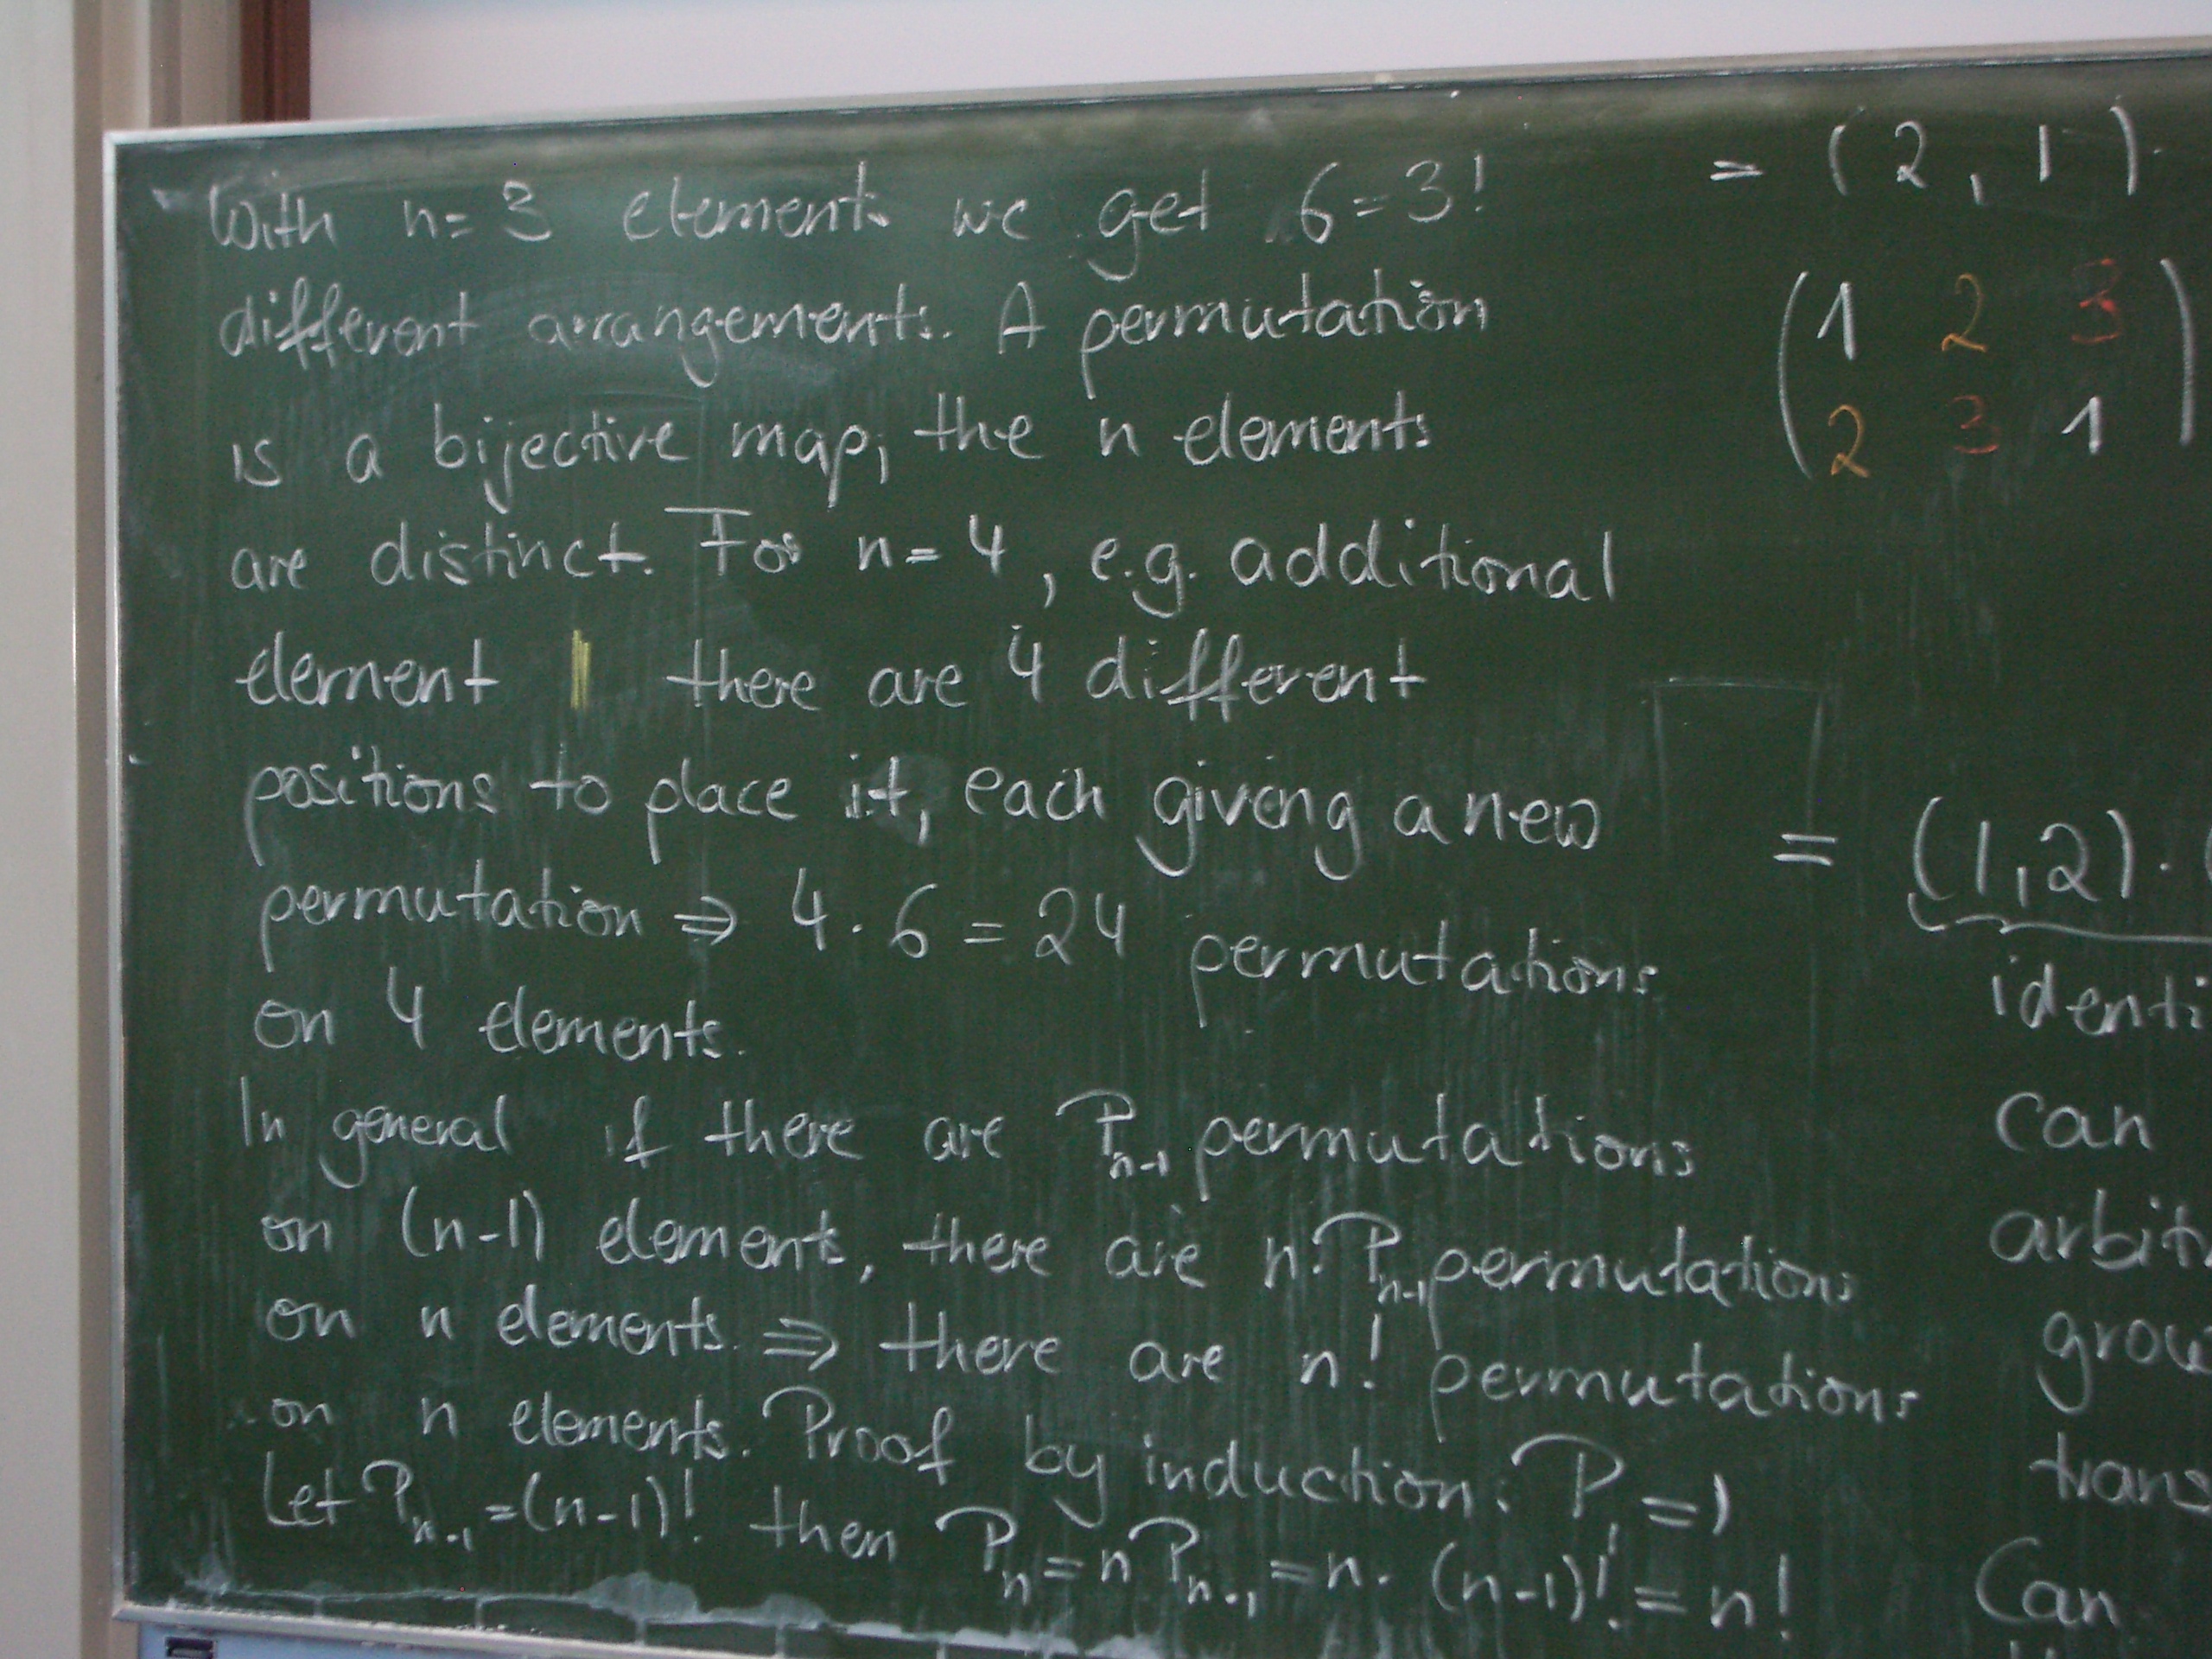 With n=3 elements we get 6=3!
different arrangements. A permutation
is a bijective map, the n elements
are distinct. For n=4, e.g. additional
element | there are 4 different
positions to place it, each giving a new
permutation ⇒ 4·6=24 permutations
on 4 elements.
In general if there are Pₙ₋₁ permutations
on (n-1) elements, there are n·Pₙ₋₁ permutations
on n elements ⇒ there are n! permutations
on n elements. Proof by induction: P₁=1
Let Pₙ₋₁=(n-1)! then Pₙ=nPₙ₋₁=n·(n-1)!=n!
= (2, 1)
(1 2 3)
(2 3 1)
= (1,2)·(
identi
can
arbit
grou
trans
Can